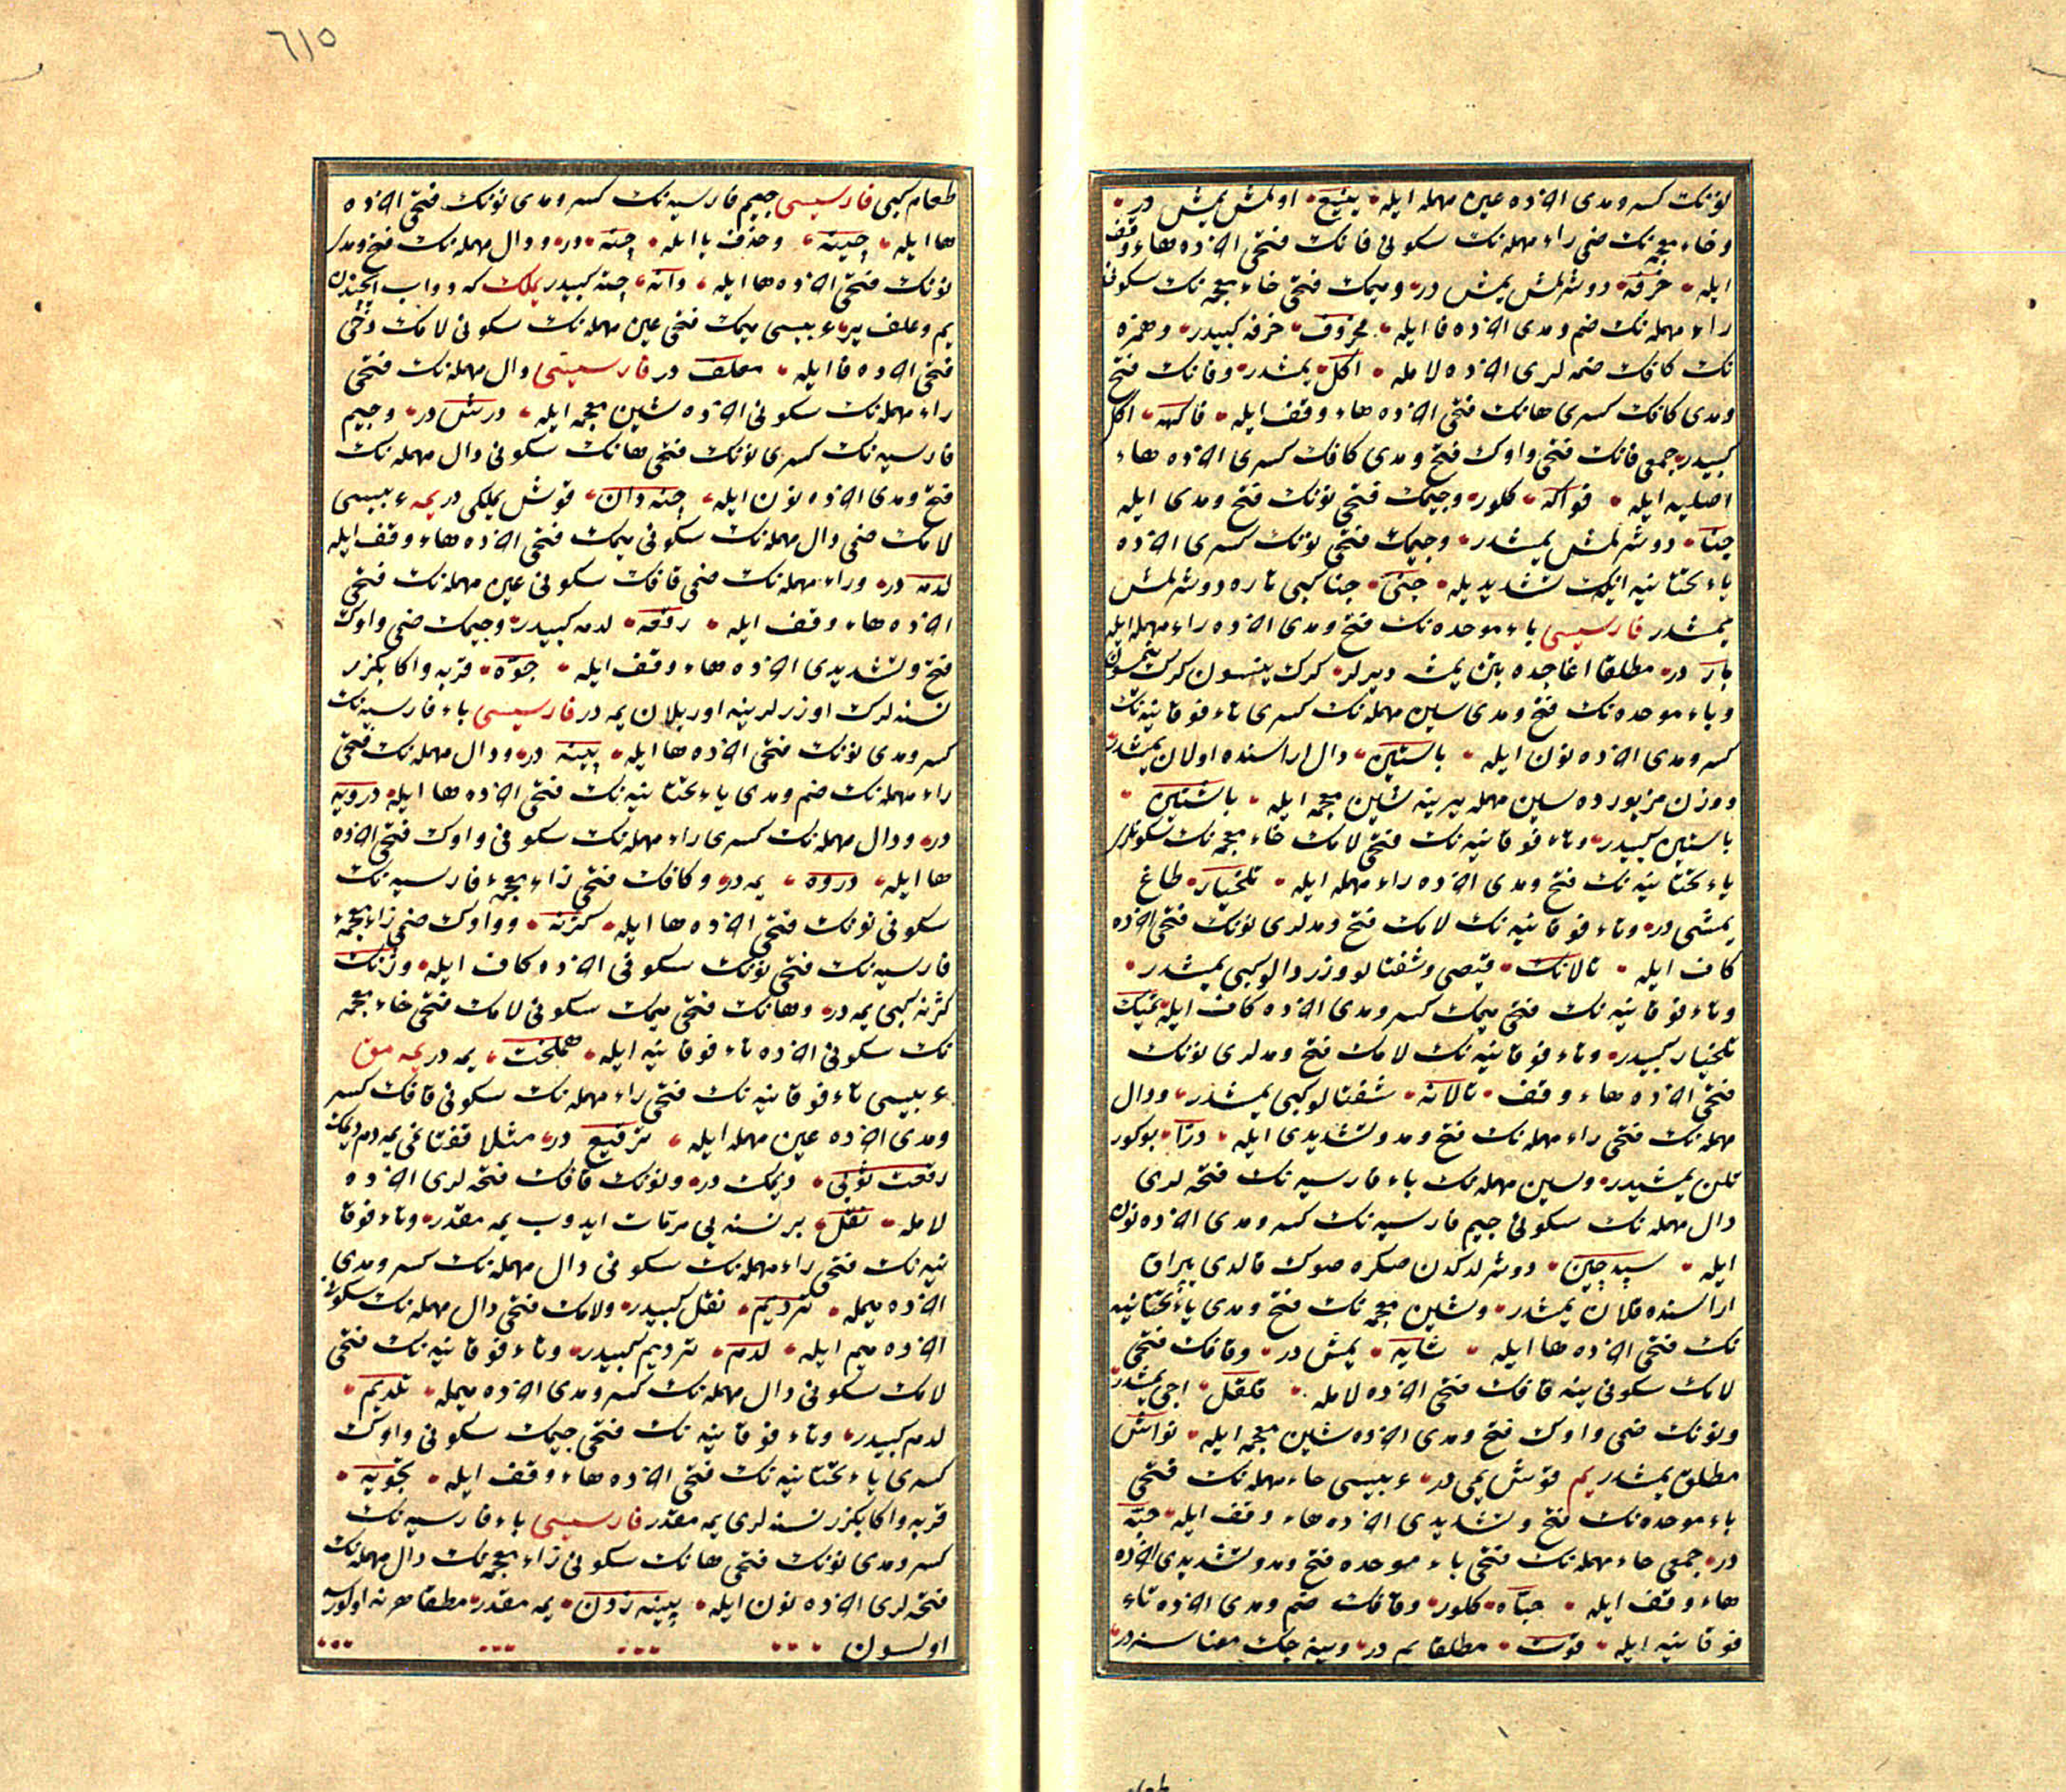 نونك كسر ومدى اخرده عين مهمله ايله ينيع اولمش يمش در
وخاء معجمه نك ضمى راء مهمله نك سكونى فانك فتحى اخرده هاء وقف
ايله خرفة دوشرلمش يمش در وميمك فتحى خاء معجمه نك سكونى
راء مهمله نك ضم ومدى اخرده فا ايله مخروف خرفه كبيدر وهمزه
نك كافك ضمه لرى اخرده لامله اكل يمشدر وفانك فتح
ومدى كافك كسرى هانك فتحى اخرده هاء وقف ايله فاكهة اكل
كبيدر جمعى فانك فتحى واوك فتح ومدى كافك كسرى اخرده هاء
اصليه ايله فواكه كلور وجيمك فتحى نونك فتح ومدى ايله
جنا دوشرلمش يمشدر وجيمك فتحى نونك كسرى اخرده
ياء تحتانيه انك تشديديله جنى جنا كبى تازه دوشرلمش
يمشدر فارسيسى باء موحده نك فتح ومدى اخرده راء مهمله ايله
بار در مطلقا اغاجده بتن يمشه ديرلر كرك ينسون كرك ينمسون
وباء موحده نك فتح ومدى سين مهمله نك كسرى تاء فوقانيه نك
كسر ومدى اخرده نون ايله باستين دال اراسنده اولان يمشدر
ووزن مزبورده سين مهمله يرينه شين معجمه ايله باشتين
باستين كبيدر وتاء فوقانيه نك فتحى لامك خاء معجمه نك سكونلرى
ياء تحتانيه نك فتح ومدى اخرده راء مهمله ايله تلخيار طاغ
يمشى در وتاء فوقانيه نك لامك فتح ومدلرى نونك فتحى اخرده
كاف ايله تالانك قيصى وشفتالو وزردالو كبى يمشدر
وتاء فوقانيه نك فتحى ميمك كسر ومدى اخرده كاف ايله تميك
تلخيار كبيدر وتاء فوقانيه نك لامك فتح ومدلرى نونك
فتحى اخرده هاء وقف تالانه شفتالو كبى يمشدر ودال
مهمله نك فتحى راء مهمله نك فتح ومد وتشديدى ايله درا بوكور
تلن يمشيدر وسين مهمله نك باء فارسيه نك فتحه لرى
دال مهمله نك سكونى جيم فارسيه نك كسر ومدى اخرده نون
ايله سپدچين دوشرلدكدن صكره صوك قالدى يپراق
اراسنده قلان يمشدر وشين معجمه نك فتح ومدى ياء تحتانيه
نك فتحى اخرده ها ايله شايه يمش در وقافك فتحى
لامك سكونى ينه قافك فتحى اخرده لامله قلقل اجى يمشدر
ونونك ضمى واوك فتح ومدى اخرده شين معجمه ايله نواش
مطلق يمشدر يم قوش يمى در عربيسى حاء مهمله نك فتحى
باء موحده نك فتح وتشديدى اخرده هاء وقف ايله حبة
در جمعى حاء مهمله نك فتحى باء موحده فتح ومد وتشديدى اخرده
هاء وقف ايله حباة كلور وقافك ضم ومدى اخرده تاء
فوقانيه ايله قوت مطلقا يم در وييه جك معناسنه در
طعام كبى فارسيسى جيم فارسيه نك كسر ومدى نونك فتحى اخرده
ها ايله چينه وحذف يا ايله چنه در ودال مهمله نك فتح ومدى
نونك فتحى اخرده ها ايله دانه چنه كبيدر يملك كه دواب ايچندن
يم وعلف ير عربيسى ميمك فتحى عين مهمله نك سكونى لامك دخى
فتحى اخرده فا ايله معلف در فارسيسى دال مهمله نك فتحى
راء مهمله نك سكونى اخرده شين معجمه ايله درش در وجيم
فارسيه نك كسرى نونك فتحى هانك سكونى دال مهمله نك
فتح ومدى اخرده نون ايله چنه دان قوش يملكى در يمه عربيسى
لامك ضمى دال مهمله نك سكونى ميمك فتحى اخرده هاء وقف ايله
لدمة در وراء مهمله نك ضمى قافك سكونى عين مهمله نك فتحى
اخرده هاء وقف ايله رقعة لدمه كبيدر وجيمك ضمى واوك
فتح وتشديدى اخرده هاء وقف ايله جوة قربه واكا بكزر
نسنه لرك اوزرلرينه اوريلان يمه در فارسيسى باء فارسيه نك
كسر ومدى نونك فتحى اخرده ها ايله پينه در ودال مهمله نك فتحى
راء مهمله نك ضم ومدى ياء تحتانيه نك فتحى اخرده ها ايله درويه
در ودال مهمله نك كسرى راء مهمله نك سكونى واوك فتحى اخرده
ها ايله دروه يمه در وكافك فتحى زاء معجمه فارسيه نك
سكونى نونك فتحى اخرده ها ايله كژنه وواوك ضمى زاء معجمه
فارسيه نك فتحى نونك سكونى اخرده كاف ايله وژنك
كژنه كبى يمه در وهانك فتحى ميمك سكونى لامك فتحى خاء معجمه
نك سكونى اخرده تاء فوقانيه ايله هملخت يمه در يمه مق
عربيسى تاء فوقانيه نك فتحى راء مهمله نك سكونى قافك كسر
ومدى اخرده عين مهمله ايله ترقيع در مثلا قفتانمى يمه دم ديمك
رقعت ثوبى ديمك در ونونك قافك فتحه لرى اخرده
لامله نقل بر نسنه يى مرتات ايدوب يمه مقدر وتاء فوقا
نيه نك فتحى راء مهمله نك سكونى دال مهمله نك كسر ومدى
اخرده ميمله ترديم نقل كبيدر ولامك فتحى دال مهمله نك سكونى
اخرده ميم ايله لدم ترديم كبيدر وتاء فوقانيه نك فتحى
لامك سكونى دال مهمله نك كسر ومدى اخرده ميمله تلديم
لدم كبيدر وتاء فوقانيه نك فتحى جيمك سكونى واوك
كسرى ياء تحتانيه نك فتحى اخرده هاء وقف ايله تجوية
قربه واكا بكزر نسنه لرى يمه مقدر فارسيسى باء فارسيه نك
كسر ومدى نونك فتحى هانك سكونى زاء معجمه نك دال مهمله نك
فتحه لرى اخرده نون ايله پينه زدن يمه مقدر مطلقا هر نه اولورسه
اولسون
٦١٥